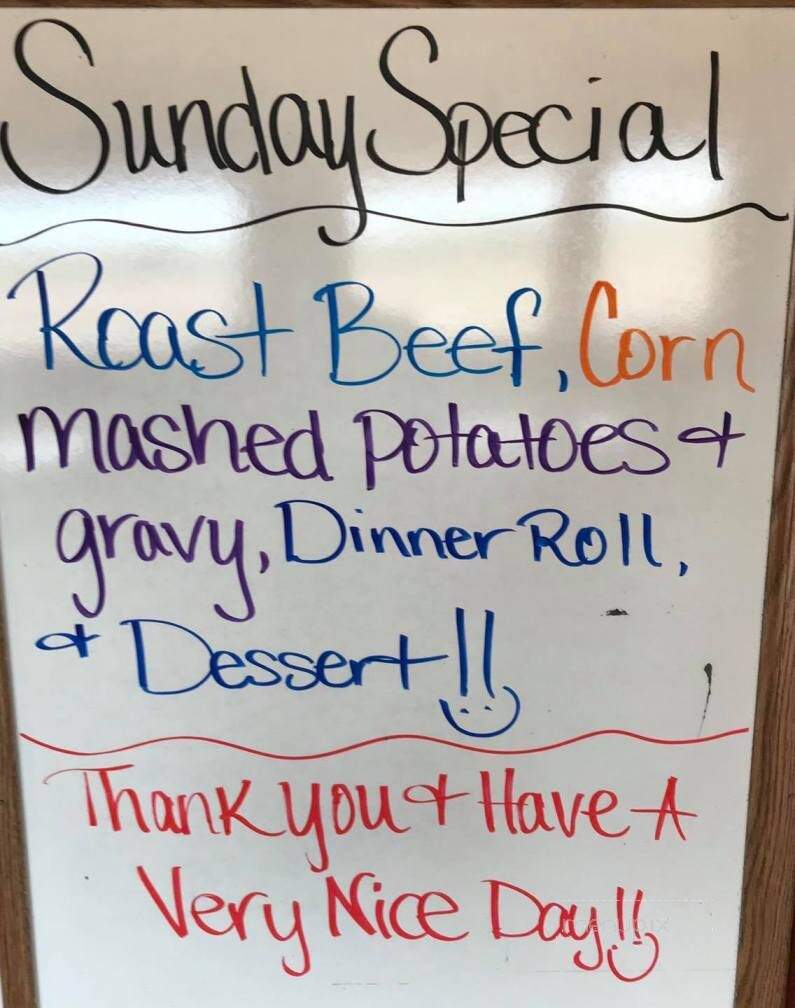 Sunday Special
Roast Beef, Corn
mashed potatoes &
gravy, Dinner Roll,
& Dessert!!
Thank you & Have A
Very Nice Day!!